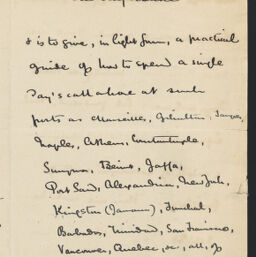 & is to give, in light form, a practical
guide of how to spend a single
Day's call ahore at such
ports as Marseilles, Gibraltar,
Naples, Athens, Constantinople,
Smyrna, Beirut, Jaffa,
Port Said, Alexandria, New York,
Kingston (Jamaica), Trinidad,
Barbados, Trinidad, San Francisco,
Vancouver, Quebec, &c, all, of